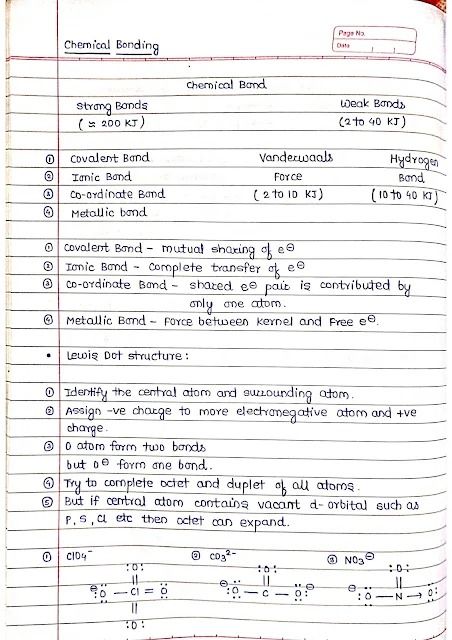 Page No.
Date
Chemical Bonding
Chemical Bond
Strong Bonds Weak Bonds
(≈ 200 KJ) (2 to 40 KJ)
① Covalent Bond Vanderwaals Hydrogen
② Ionic Bond Force Bond
③ Co-ordinate Bond (2 to 10 KJ) (10 to 40 KJ)
④ Metallic bond
① Covalent Bond - mutual sharing of e⊖
② Ionic Bond - Complete transfer of e⊖
③ Co-ordinate Bond - shared e⊖ pair is contributed by
only one atom.
④ Metallic Bond - Force between kernel and Free e⊖.
• Lewis Dot structure :
① Identify the central atom and surrounding atom.
② Assign -ve charge to more electronegative atom and +ve
charge.
③ O atom form two bonds
but O⊖ form one bond.
④ Try to complete octet and duplet of all atoms.
⑤ But if central atom contains vacant d-orbital such as
P, S, Cl etc then octet can expand.
① ClO4⁻ ② CO3²⁻ ③ NO3⊖
:O: :O: :O:
|| || ||
⊖:O — Cl = O ⊖:O — C — O:⊖ ⊖:O — N → O:
||
:O: